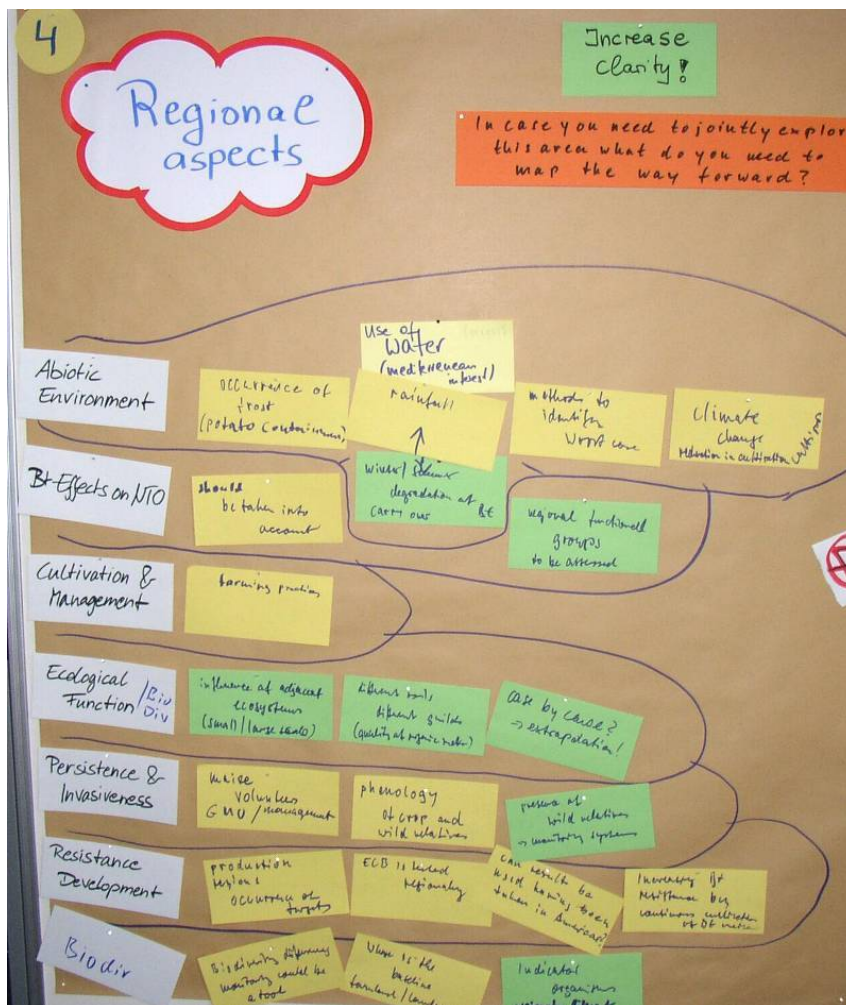 4
Regional
aspects
Increase
Clarity!
In case you need to jointly explor
this area what do you need to
map the way forward?
Abiotic
Environment
occurrence of
frost
(potato containment)
Use of
Water
(mediterranean
interest)
rainfall
methods to
identify
worst case
Climate
change
cultivation
Bt-Effects on NTO
should
be taken into
account
winter/
degradation of
carry over Bt
regional functionell
groups
to be assessed
Cultivation &
Management
farming practices
Ecological
Function /Bio
Div
influence of adjacent
ecosystems
(small/large scale)
different soils
different guilds
(quality of organic matter)
case by case?
→ extrapolation!
Persistence &
Invasiveness
maize
volunteer
GMO/management
phenology
of crop and
wild relatives
presence of
wild relatives
→ monitoring systems
Resistance
Development
production
regions
occurrence of
targets
ECB is
regionally
can results be
used having been
taken in Americas?
Increasing Bt
resistance by
continuous cultivation
of Bt maize
Biodiv
Biodiversity
monitoring could be
a tool
Where is the
baseline
farmland/
Indicator
organisms